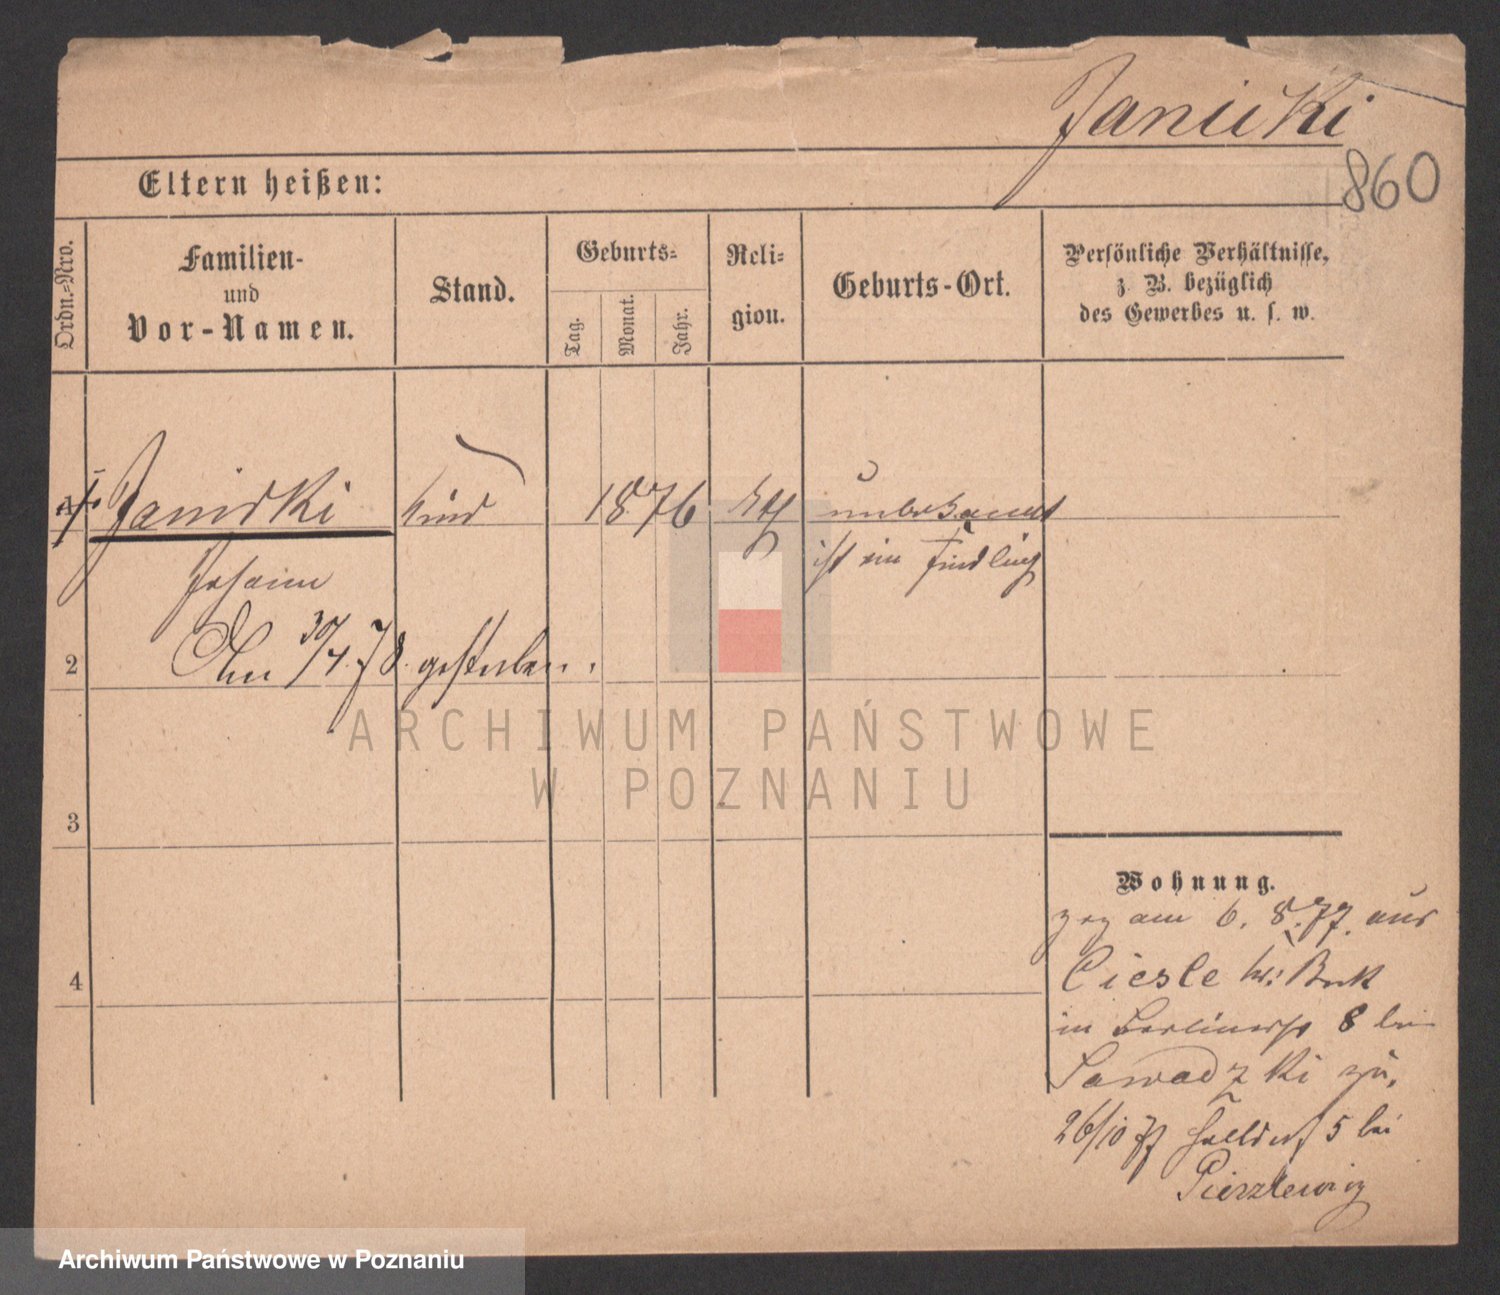 Janicki
860
Eltern heißen:
Ordn.-Nro.
Familien-
und
Vor-Namen.
Stand.
Geburts-
Tag.
Monat.
Jahr.
Reli-
gion.
Geburts-Ort.
Persönliche Verhältnisse,
z. B. bezüglich
des Gewerbes u. s. w.
1. Janicki Kind 1876 kth unbekannt
Johann ist ein Findling
2 Am 30/4.78. gestorben.
ARCHIWUM PAŃSTWOWE
W POZNANIU
3
4
Wohnung.
zog am 6. 8. 77. aus
Ciesle Kr: Buk
in Berlinerstr 8 bei
Sawadzki zu,
26/10 77 5 bei
Archiwum Państwowe w Poznaniu